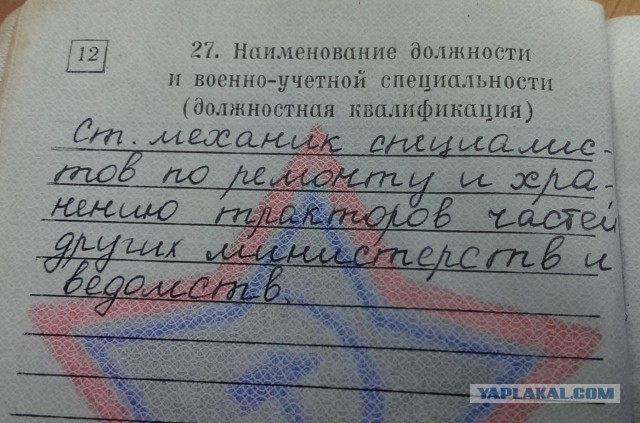 12
27. Наименование должности
и военно-учетной специальности
(должностная квалификация)
Ст. механик специалис-
тов по ремонту и хра-
нению тракторов частей
других министерств и
ведомств.
YAPLAKAL.COM